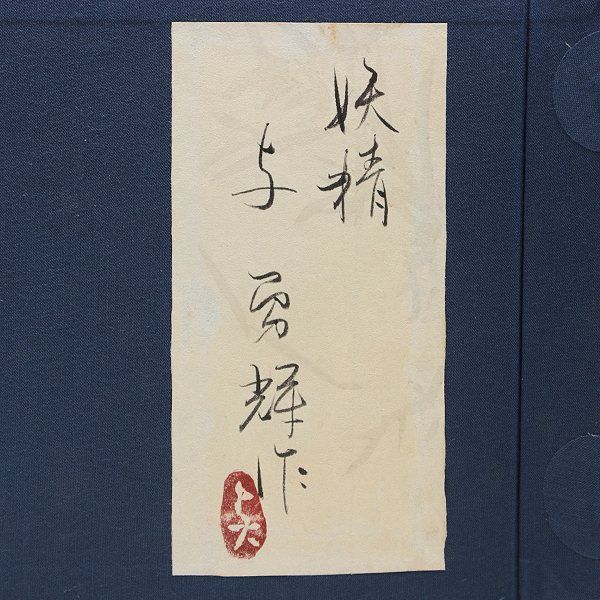 妖精
与 勇輝作